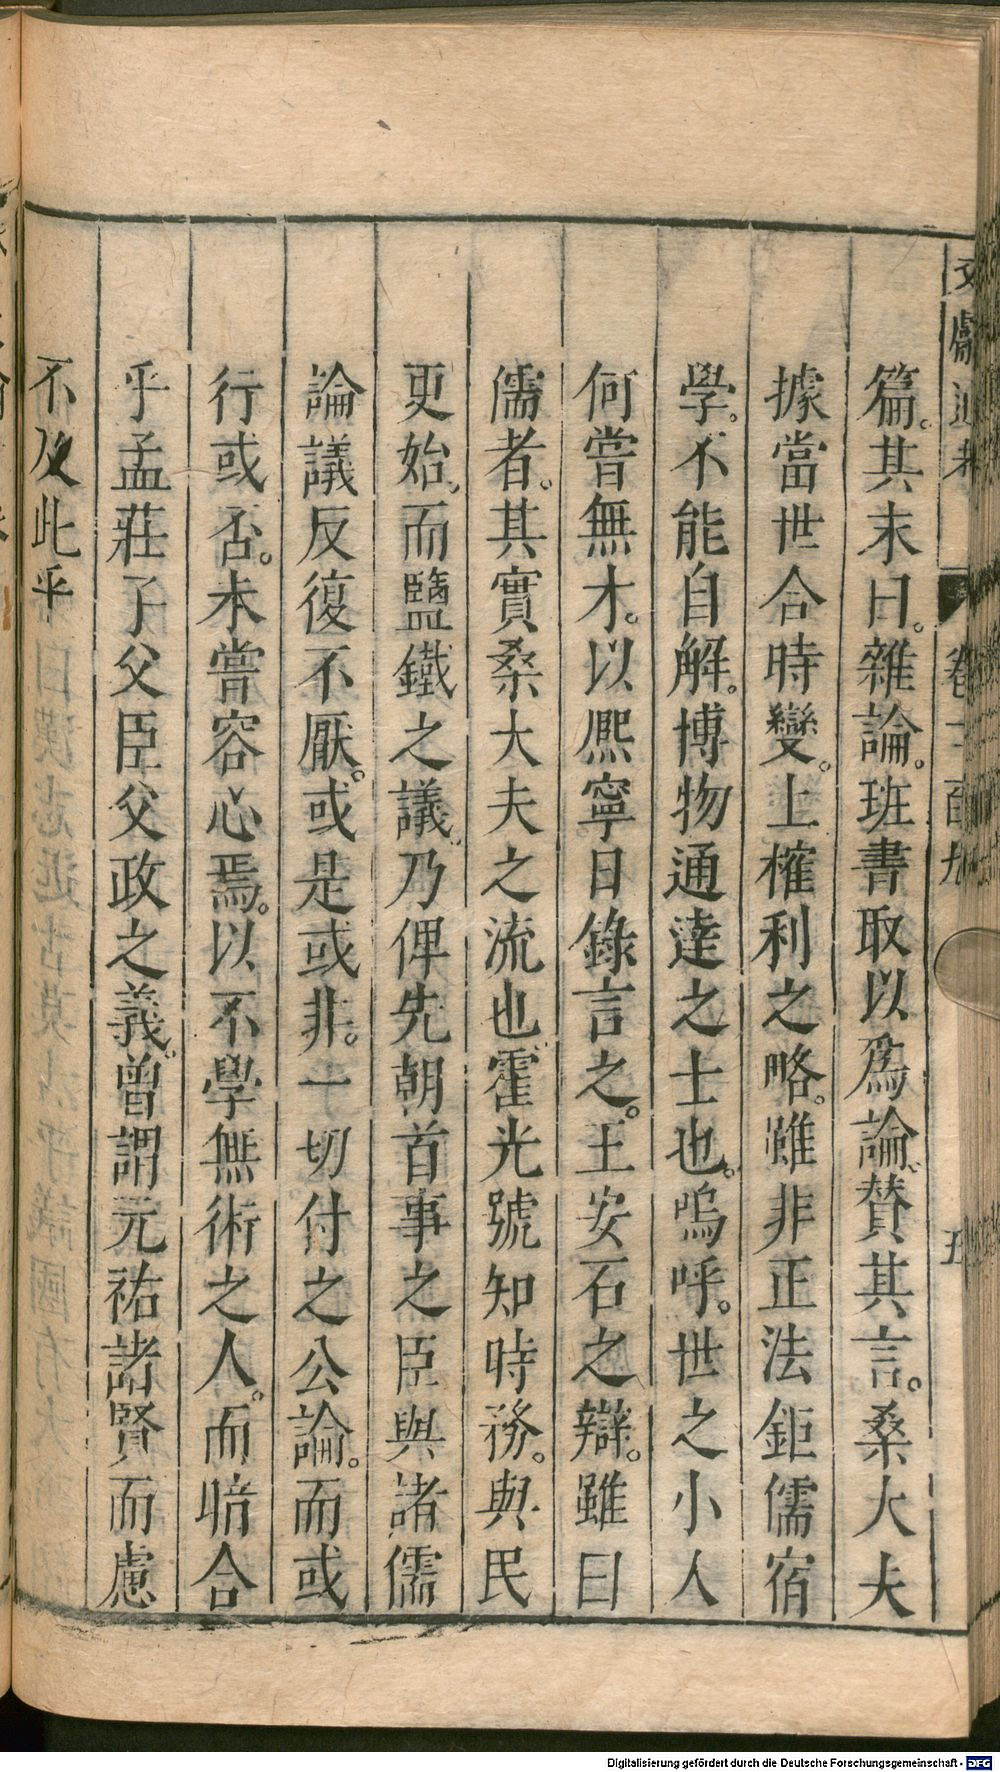 文獻通考 卷二百九 五
篇。其末曰。雜論。班書取以爲論、賛其言。桑大夫
據當世合時變。上榷利之略。雖非正法鉅儒宿
學。不能自解。博物通達之士也。嗚呼。世之小人
何嘗無才。以熈寧日錄言之。王安石之辯。雖曰
儒者。其實桑大夫之流也霍光號知時務。與民
更始、而鹽鐵之議、乃俾先朝首事之臣與諸儒
論議反復不厭。或是或非。一切付之公論。而或
行或否。未嘗容心焉。以不學無術之人。而暗合
乎孟莊子父臣父政之義。曾謂元祐諸賢而慮
不及此乎
Digitalisierung gefördert durch die Deutsche Forschungsgemeinschaft - DFG